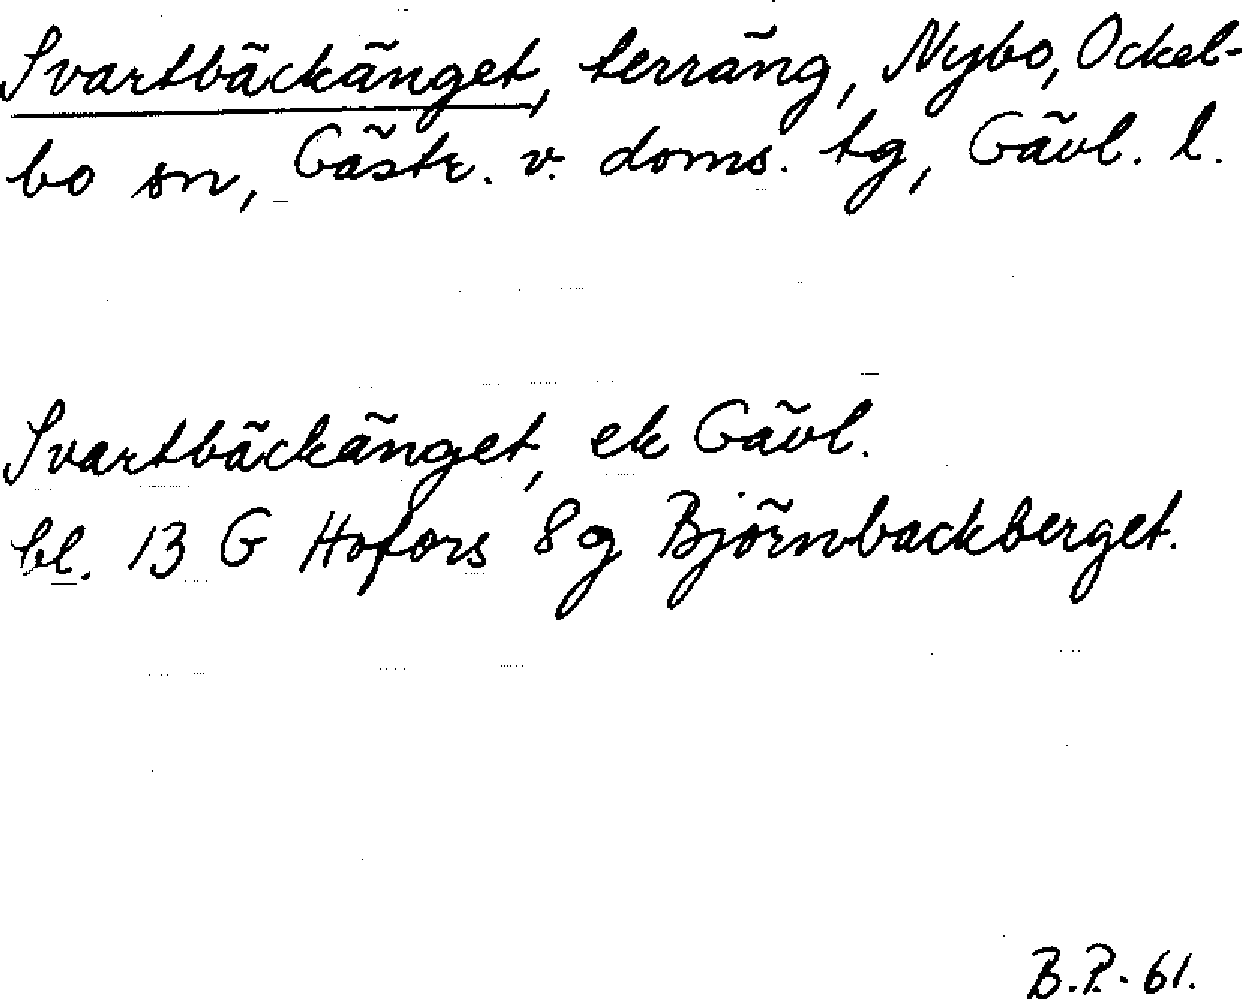 Svartbäckänget, terräng, Nybo, Ockel-
bo sn, Gästr. v. doms. tg, Gävl. l.
Svartbäckänget, ek Gävl.
bl. 13 G Hofors 8g Björnbackberget.
B.P. 61.